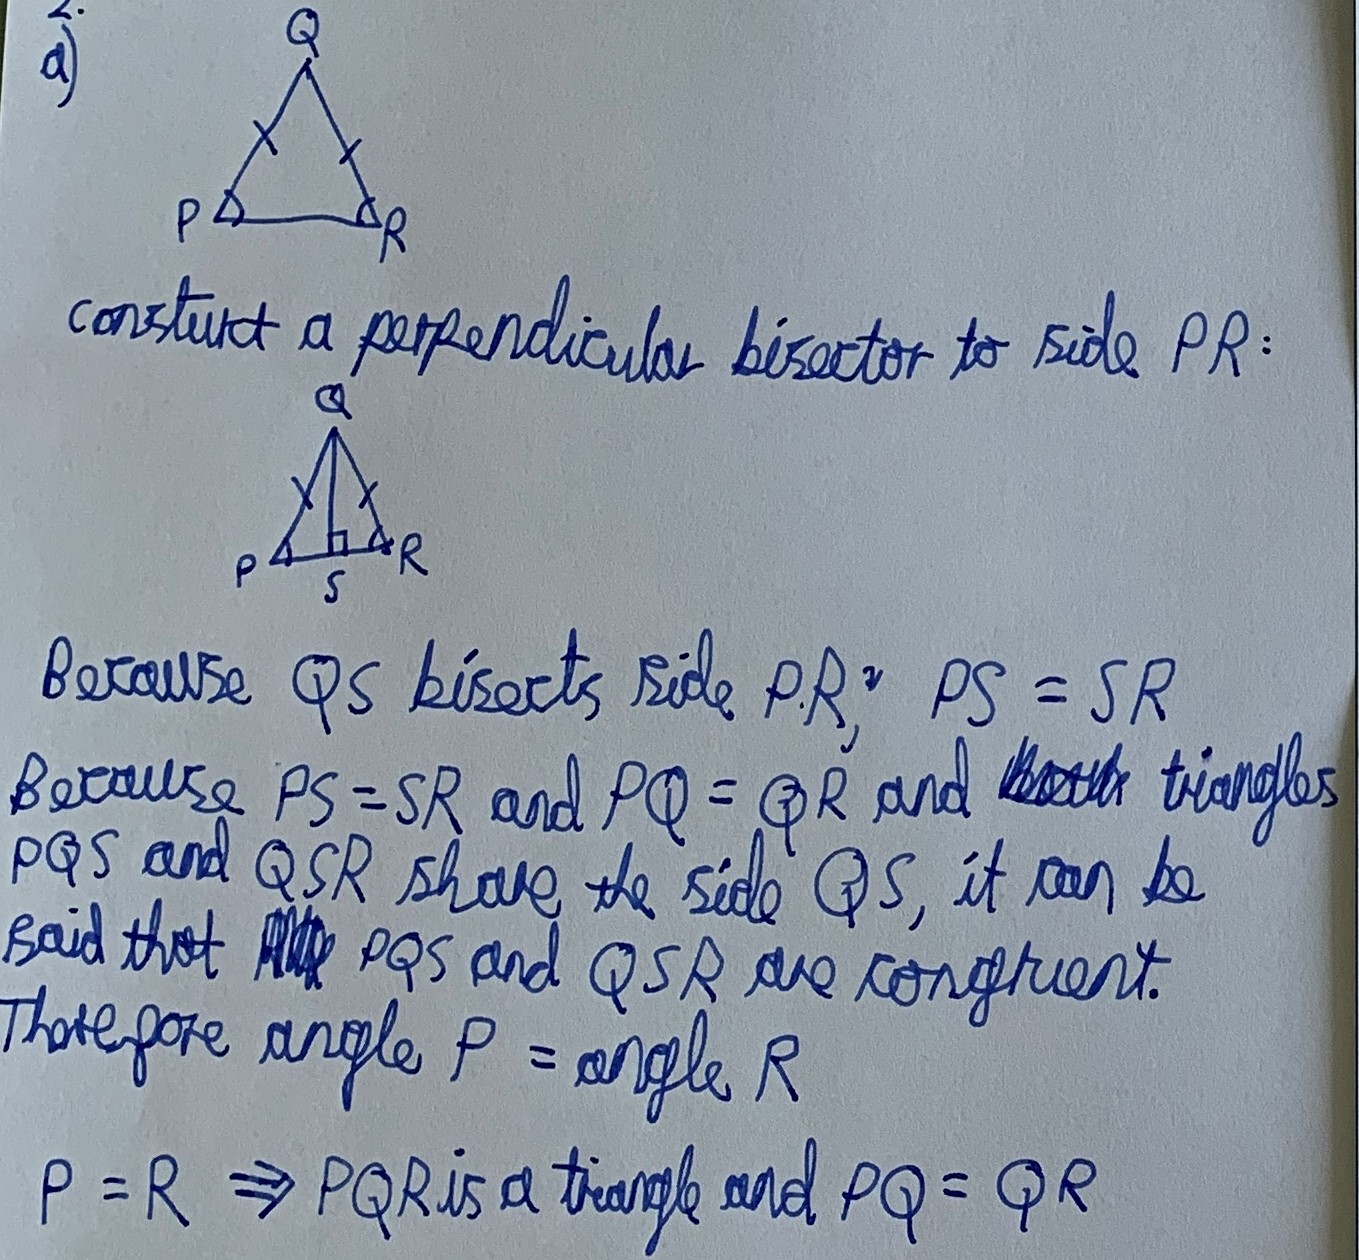 2.
a)
Q
P
R
construct a perpendicular bisector to side PR:
Q
P
S
R
Because QS bisects side PR, PS = SR
Because PS = SR and PQ = QR and triangles
PQS and QSR share the side QS, it can be
said that PQS and QSR are congruent.
Therefore angle P = angle R
P = R ⇒ PQR is a triangle and PQ = QR